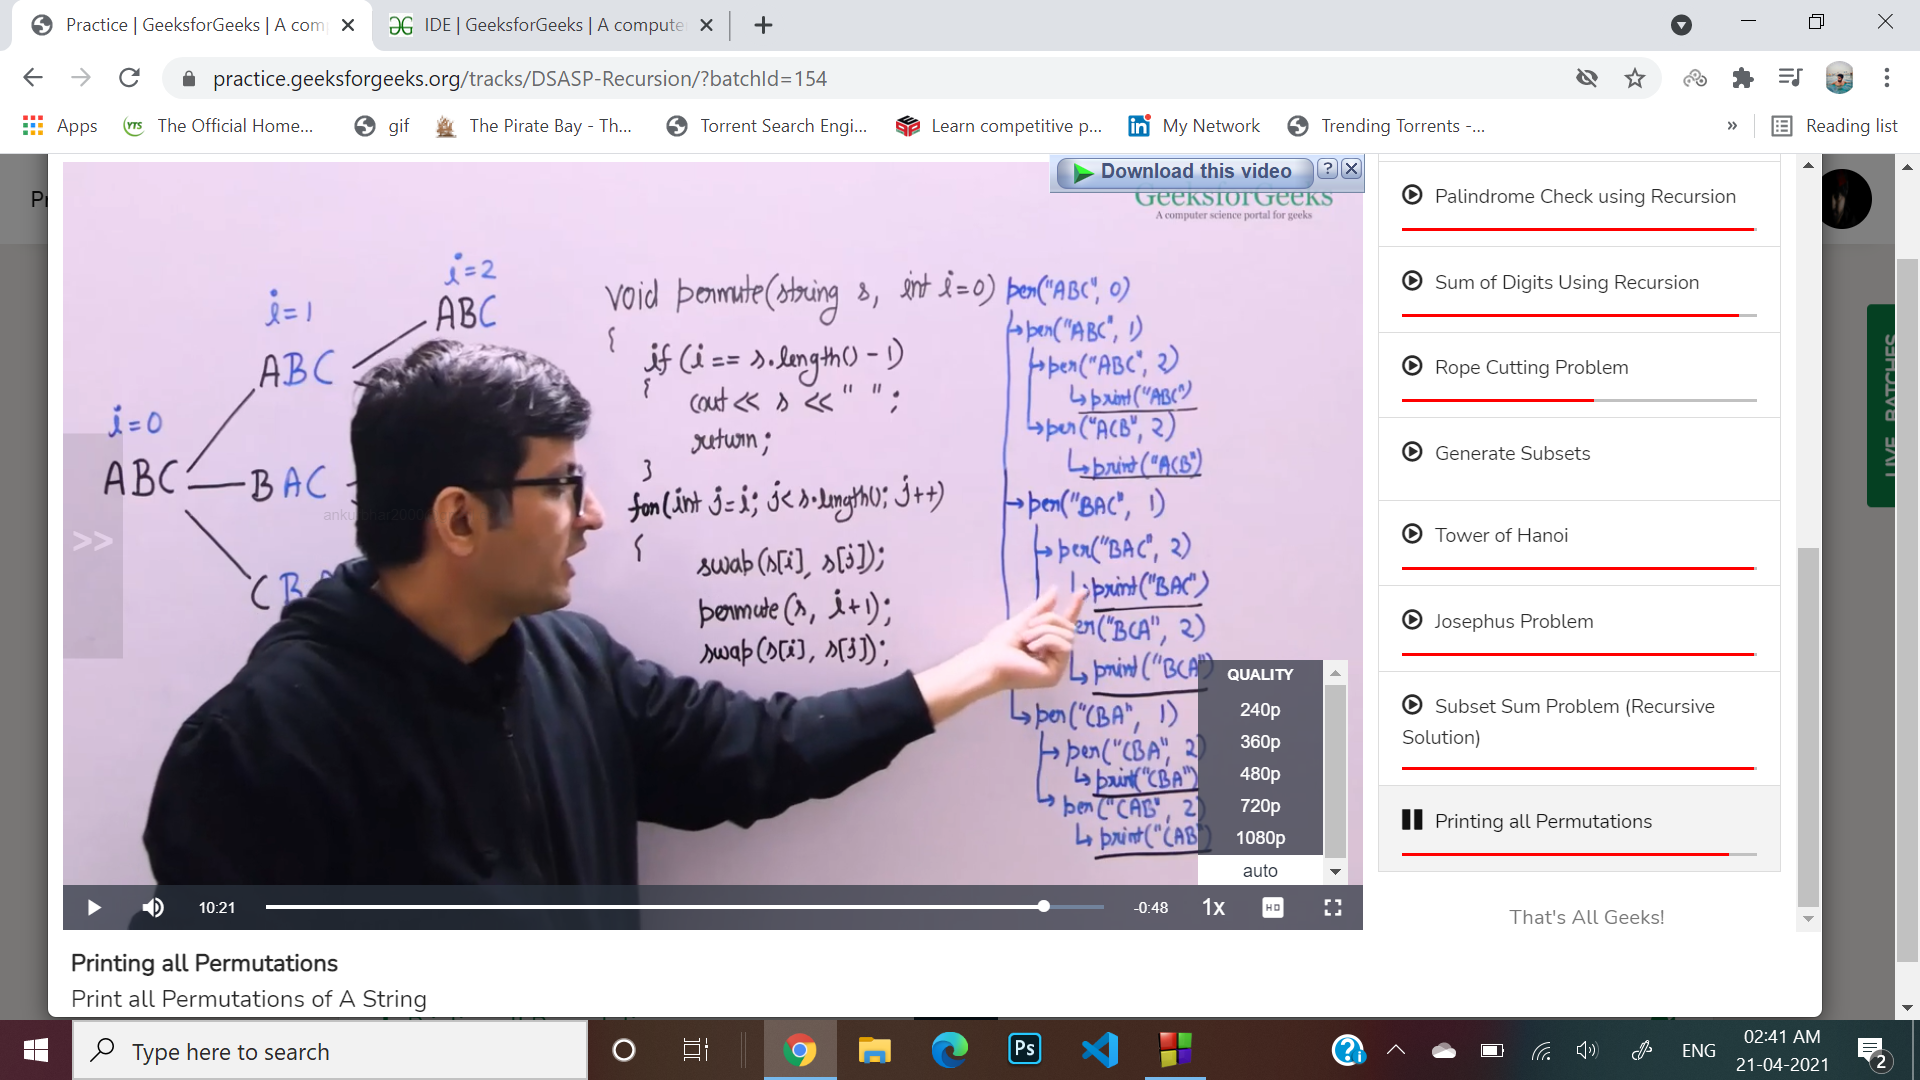 Practice | GeeksforGeeks | A com
IDE | GeeksforGeeks | A compute
practice.geeksforgeeks.org/tracks/DSASP-Recursion/?batchId=154
Apps
The Official Home...
gif
The Pirate Bay - Th...
Torrent Search Engi...
Learn competitive p...
My Network
Trending Torrents -...
»
Reading list
Download this video
GeeksforGeeks
A computer science portal for geeks
i=0
ABC
i=1
ABC
BAC
CB
i=2
ABC
void permute(string s, int i=0)
{
if (i == s.length() - 1)
{
cout << s << " ";
return;
}
for(int j=i; j<s.length(); j++)
{
swap(s[i], s[j]);
permute(s, i+1);
swap(s[i], s[j]);
per("ABC", 0)
per("ABC", 1)
per("ABC", 2)
print("ABC")
per("ACB", 2)
print("ACB")
per("BAC", 1)
per("BAC", 2)
print("BAC")
er("BCA", 2)
print("BCA")
per("CBA", 1)
per("CBA", 2)
print("CBA")
per("CAB", 2)
print("CAB")
>>
QUALITY
240p
360p
480p
720p
1080p
auto
10:21
-0:48
1x
HD
Printing all Permutations
Print all Permutations of A String
Palindrome Check using Recursion
Sum of Digits Using Recursion
Rope Cutting Problem
Generate Subsets
Tower of Hanoi
Josephus Problem
Subset Sum Problem (Recursive
Solution)
Printing all Permutations
That's All Geeks!
LIVE BATCHES
Type here to search
Ps
ENG
02:41 AM
21-04-2021
2